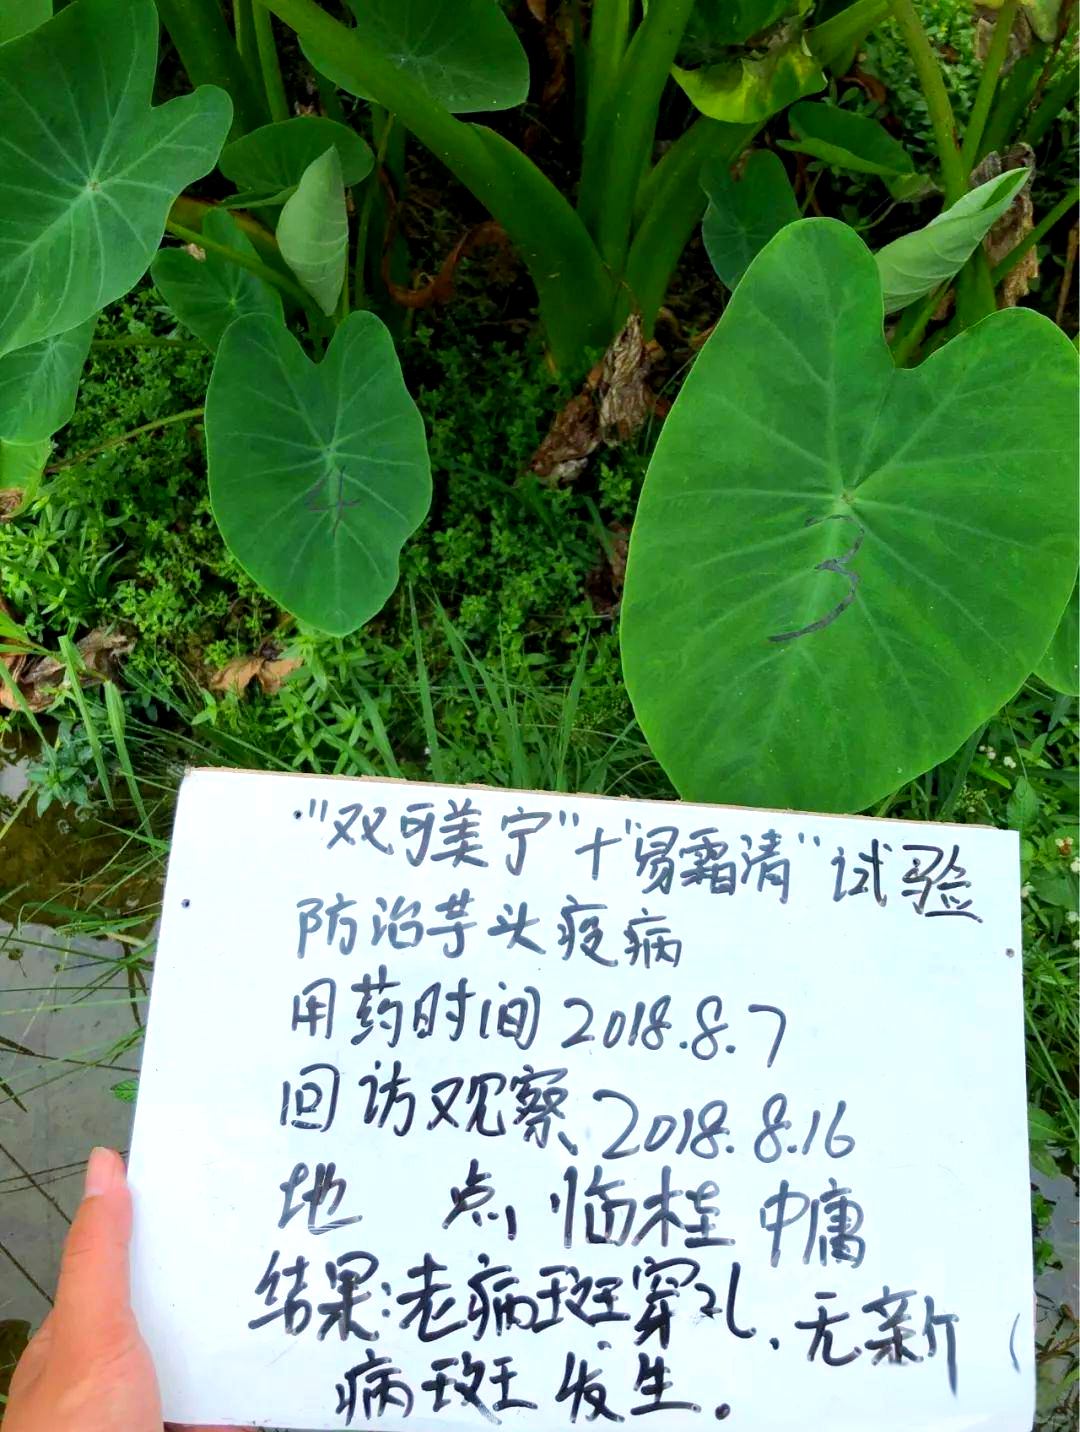 4
3
"双可美宁"+"易霜清"试验
防治芋头疫病
用药时间 2018.8.7
回访观察 2018.8.16
地 点 临桂中庸
结果:老病斑穿孔,无新
病斑发生.